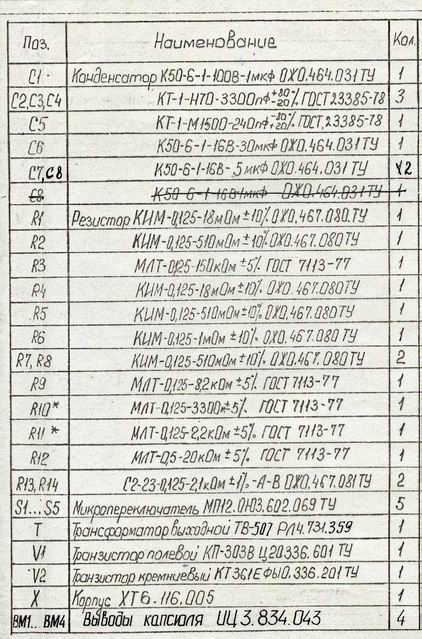 Поз. Наименование Кол.
C1 Конденсатор К50-6-1-100В-1мкф ОЖ0.464.031ТУ 1
C2,C3,C4 КТ-1-Н70-3300пФ+80-20% ГОСТ 23385-78 3
C5 КТ-1-М1500-240пф+80-20% ГОСТ,23385-78 1
C6 К50-6-1-16В-30мкф ОЖ0.464.031ТУ 1
C7,C8 К50-6-1-16В-,5мкф ОЖ0.464.031ТУ 2
C8 К50-6-1-16В-1мкф ОЖ0.464.031ТУ 1
R1 Резистор КИМ-0,125-18мОм±10% ОЖ0.467.080ТУ 1
R2 КИМ-0,125-510мОм±10% ОЖ0.467.080ТУ 1
R3 МЛТ-0,125-150кОм±5% ГОСТ 7113-77 1
R4 КИМ-0,125-18мОм±10% ОЖ0.467.080ТУ 1
R5 КИМ-0,125-510мОм±10% ОЖ0.467.080ТУ 1
R6 КИМ-0,125-1мОм±10% ОЖ0.467.080ТУ 1
R7, R8 КИМ-0,125-510мОм±10% ОЖ0.467.080ТУ 2
R9 МЛТ-0,125-8,2кОм±5% ГОСТ 7113-77 1
R10* МЛТ-0,125-330Ом±5% ГОСТ 7113-77 1
R11* МЛТ-0,125-2,2кОм±5% ГОСТ 7113-77 1
R12 МЛТ-0,5-20кОм±5% ГОСТ 7113-77 1
R13, R14 С2-23-0,125-2,1кОм±1%-А-В ОЖ0.467.081ТУ 2
S1...S5 Микропереключатель МП12.0Ю3.602.069ТУ 5
T Трансформатор выходной ТВ-507 РЛ4.731.359 1
V1 Транзистор полевой КП-303В Ц20.336.601ТУ 1
V2 Транзистор кремниевый КТ361Е ФЫ0.336.201ТУ 1
X Корпус ХТ6.116.005 1
ВМ1.. ВМ4 Выводы капсюля ИЦ3.834.043 4